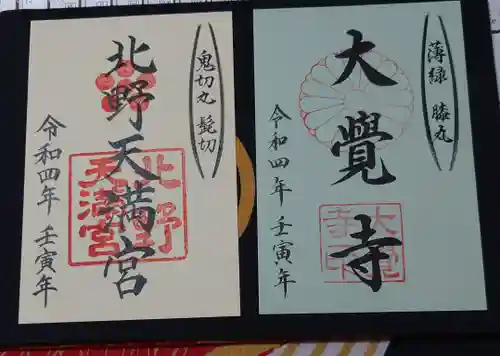 鬼切丸 髭切
北野天満宮
北野
天満宮
令和四年 壬寅年
薄緑 膝丸
大覺寺
令和四年 壬寅年